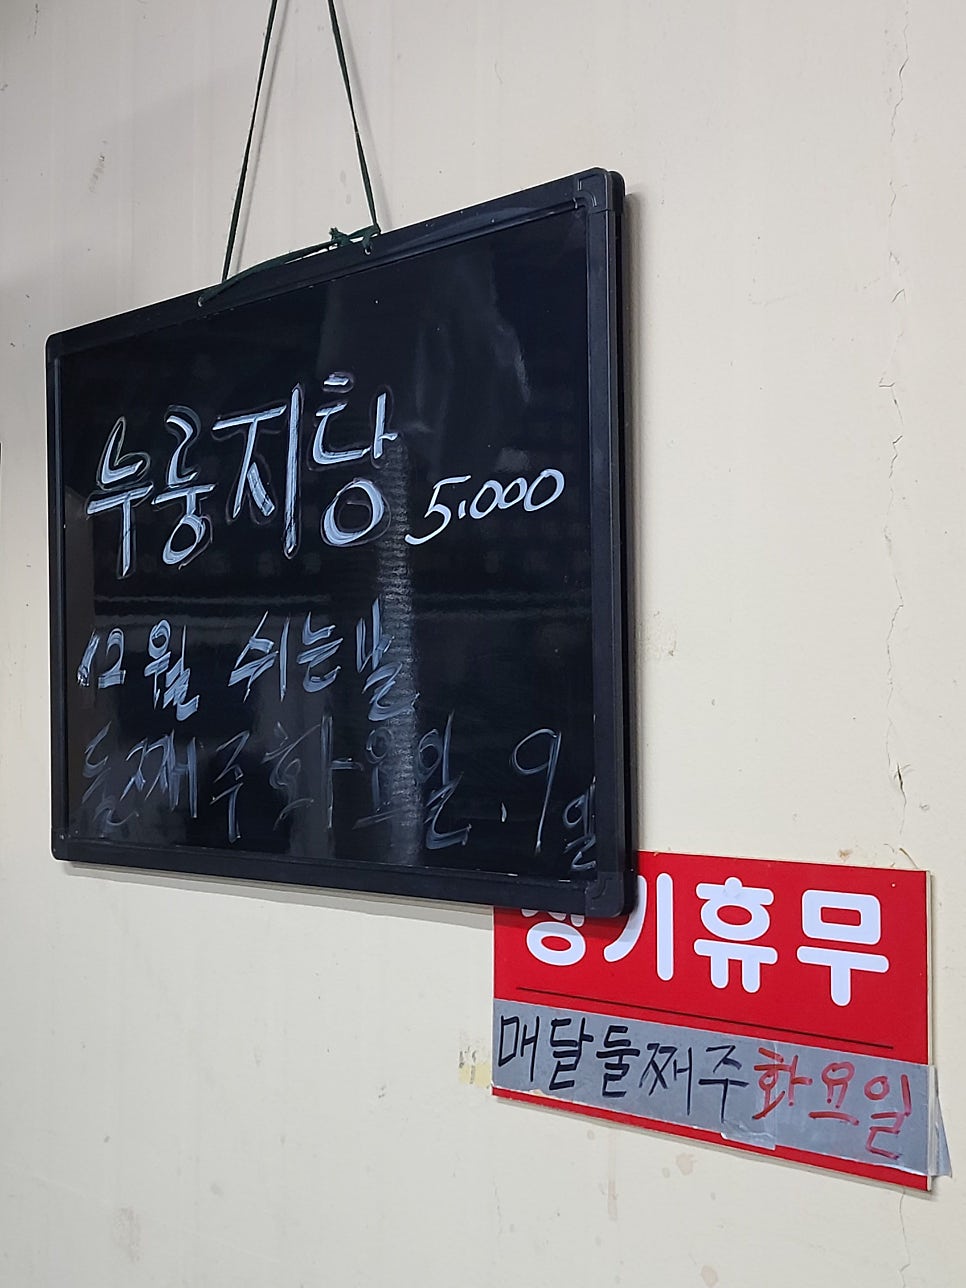 누룽지탕 5.000
12월 쉬는날
둘째주 화요일. 9일
정기휴무
매달둘째주화요일